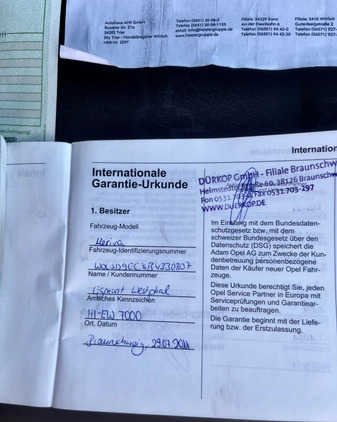 Autohaus AHG GmbH
54292 Trier
Telefon (0651) 20 58-0
Telefax (0651) 20 58-1155
Filiale: 54329 Konz
An der Eisenbahn 6
Telefon (06501) 94 42-0
Telefax (06501) 94 42-20
Filiale: 5416 Wittlich
Gutenbergstraße 2
Telefon (06571) 927-
Telefax (06571) 927-
Internation
Internationale
Garantie-Urkunde
1. Besitzer
Fahrzeug-Modell
Meriva
Fahrzeug-Identifizierungsnummer
Name / Kundennummer
Westphal
Amtliches Kennzeichen
HI-EW 7000
Ort, Datum
Braunschweig, 29.07.2011
DÜRKOP GmbH - Filiale Braunschw
Helmstedter Straße 60, 38126 Braunschw
Fon 0531.703-0, Fax 0531.703-297
WWW.DUERKOP.DE
Im Einklang mit dem Bundesdaten-
schutzgesetz bzw. mit dem
schweizer Bundesgesetz über den
Datenschutz (DSG) speichert die
Adam Opel AG zum Zwecke der Kun-
denbetreuung personenbezogene
Daten der Käufer neuer Opel Fahr-
zeuge.
Diese Urkunde berechtigt Sie, jeden
Opel Service Partner in Europa mit
Serviceprüfungen und Garantiear-
beiten zu beauftragen.
Die Garantie beginnt mit der Liefe-
rung bzw. der Erstzulassung.